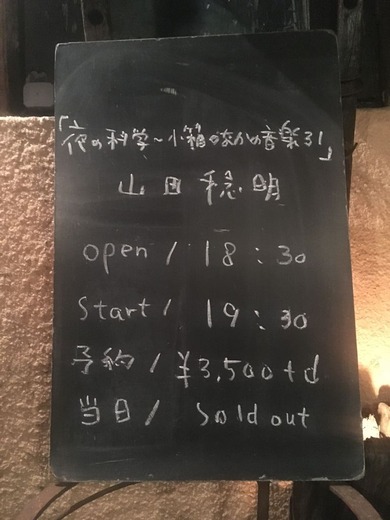 「夜の科学〜小箱のなかの音楽31」
山田稔明
open / 18:30
Start / 19:30
予約 / ¥3,500+d
当日 / Sold out